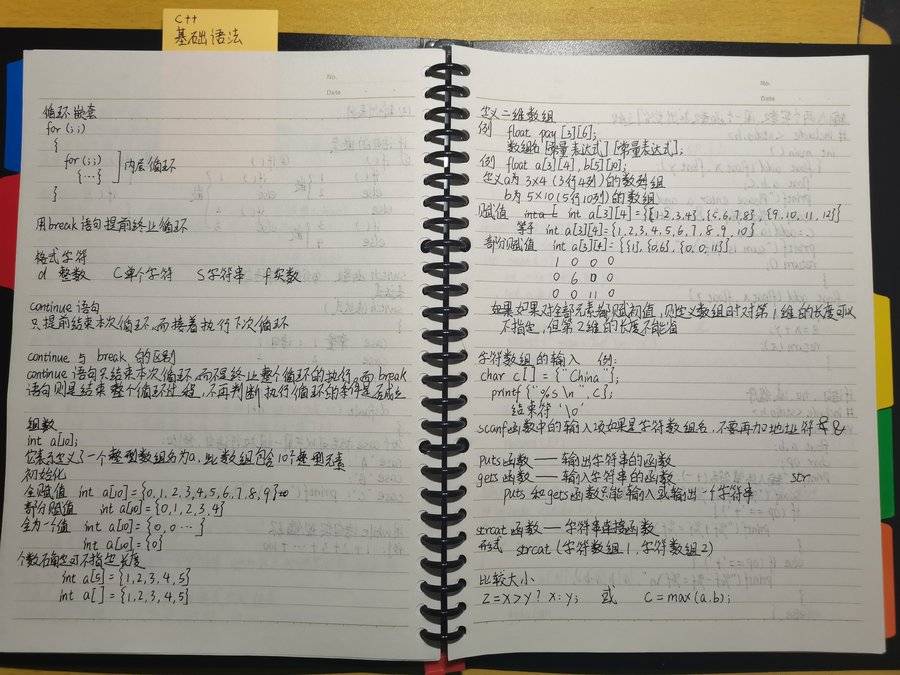 C++
基础语法
No.
Date
循环嵌套
for(;;)
{
for(;;)
{…} 内层循环
}
用break语句提前终止循环
格式字符
d 整数 C单个字符 S字符串 f实数
continue 语句
只提前结束本次循环,而接着执行下次循环
continue 与 break 的区别
continue语句只结束本次循环,而不是终止整个循环的执行,而break
语句则是结束整个循环过程,不再判断执行循环的条件是否成立
组数
int a[10];
它表示定义了一个整型数组名为a,此数组包含10个整型元素
初始化
全赋值 int a[10]={0,1,2,3,4,5,6,7,8,9}
部分赋值 int a[10]={0,1,2,3,4}
全为一个值 int a[10]={0,0…}
int a[10]={0}
个数石角定可不指定长度
int a[5]={1,2,3,4,5}
int a[]={1,2,3,4,5}
No.
Date
定义二维数组
例 float pay[3][6];
数组名[常量表达式][常量表达式];
例 float a[3][4],b[5][10];
定义a为3×4(3行4列)的数列组
b为5×10(5行10列)的数组
赋值 int a[ int a[3][4]={{1,2,3,4},{5,6,7,8},{9,10,11,12}}
等于 int a[3][4]={1,2,3,4,5,6,7,8,9,10}
部分赋值 int a[3][4]={{1},{0,6},{0,0,11}}
1 0 0 0
0 6 0 0
0 0 11 0
如果如果对全部元素都赋初值,则定义数组时对第1维的长度可以
不指定,但第2维的长度不能省
字符数组的输入 例:
char c[]={"China"};
printf{"%s\n",c};
结束符'\0'
scanf函数中的输入项如果是字符数组名,不要再加地址符&
puts函数——输出字符串的函数
gets函数——输入字符串的函数 str
puts和gets函数只能输入或输出一个字符串
strcat函数——字符串连接函数
形式 strcat(字符数组1,字符数组2)
比较大小
z=x>y?x:y; 或 c=max(a,b);